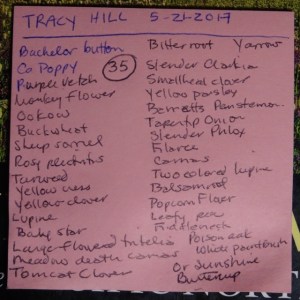 TRACY HILL 5-21-2017
Bachelor button
Co Poppy
35
Purple vetch
Monkey flower
Ookow
Buckwheat
Sheep sorrel
Rosy plectritis
Tarweed
Yellow cress
Yellow clover
Lupine
Baby star
Large flowered tritelia
Meadow death camas
Tomcat Clover
Bitterroot Yarrow
Slender Clarkia
Smallhead clover
Yellow parsley
Barretts Penstemon
Tapertip Onion
Slender Phlox
Filaree
Camas
Two colored lupine
Balsamroot
Popcorn Flower
Leafy pea
Fiddleneck
Poison oak
White plectritis
Or Sunshine
Buttercup